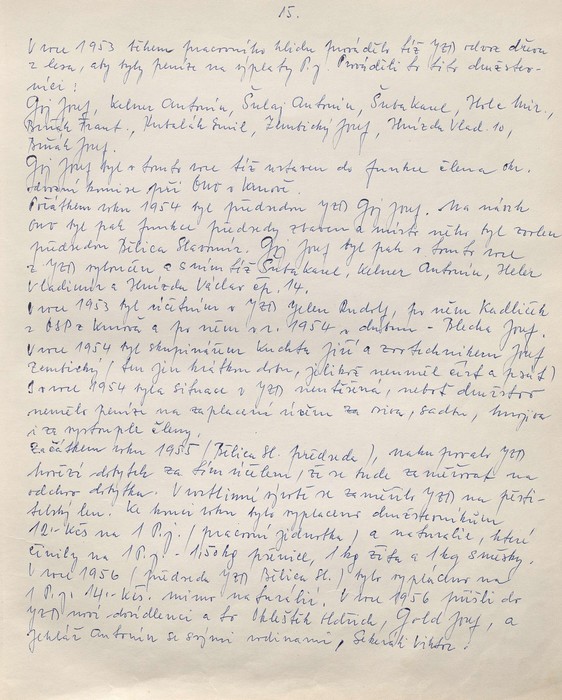 15.
V roce 1953 během pracovního klidu prováděli též JZD odvoz dřeva
z lesa, aby byly peníze na výplaty P.j. Prováděli to tito družstev-
níci:
Goj Josef, Kelner Antonín, Šulaj Antonín, Šuba Karel, Holc Mir.,
Biňák Frant., Kubalák Emil, Zembický Josef, Hnízda Vlad. 10,
Biňák Josef.
Goj Josef byl v tomto roce též ustaven do funkce člena okr.
odvodní komise při ONV v Krnově.
Počátkem roku 1954 byl předsedou JZD Goj Josef. Na návrh
ONV byl pak funkce předsedy zbaven a místo něho byl zvolen
předsedou Bělica Slavomír. Goj Josef byl pak v tomto roce
z JZD vyloučen a s ním též Šuba Karel, Kelner Antonín,
Vladimír a Hnízda Václav čp. 14.
V roce 1953 byl účetním v JZD Jelen Rudolf, po něm Kadlíček
z ČSP z Krnova a po něm v r. 1954 v dubnu - Blecha Josef.
V roce 1954 byl skupinářem Kuchta Jiří a zootechnikem Josef
Zembický (ten jen krátkou dobu, jelikož neuměl číst a psát)
I v roce 1954 byla situace v JZD neutěšená, neboť družstvo
nemělo peníze na zaplacení účtům za osiva, sadbu, hnojiva
i za vystouplé členy.
Začátkem roku 1955 (Bělica Sl. předseda), nakupovalo JZD
hovězí dobytek za tím účelem, že se bude zaměřovat na
odchov dobytka. V rostlinné výrobě se zaměřilo JZD na pěsti-
telský len. Ke konci roku bylo vyplaceno družstevníkům
12.- Kčs na 1 P.j. (pracovní jednotka) a naturalie, které
činily na 1 P.j. - 1,50 kg pšenice, 1 kg žita a 1 kg směsky.
V roce 1956 (předseda JZD Bělica Sl.) bylo vypláceno na
1 P.j. 14.- Kčs. mimo naturálií. V roce 1956 přišli do
JZD noví dosídlenci a to Okleštěk Oldřich, Gold Josef, a
Antonín se svými rodinami, Sekerák Viktor.